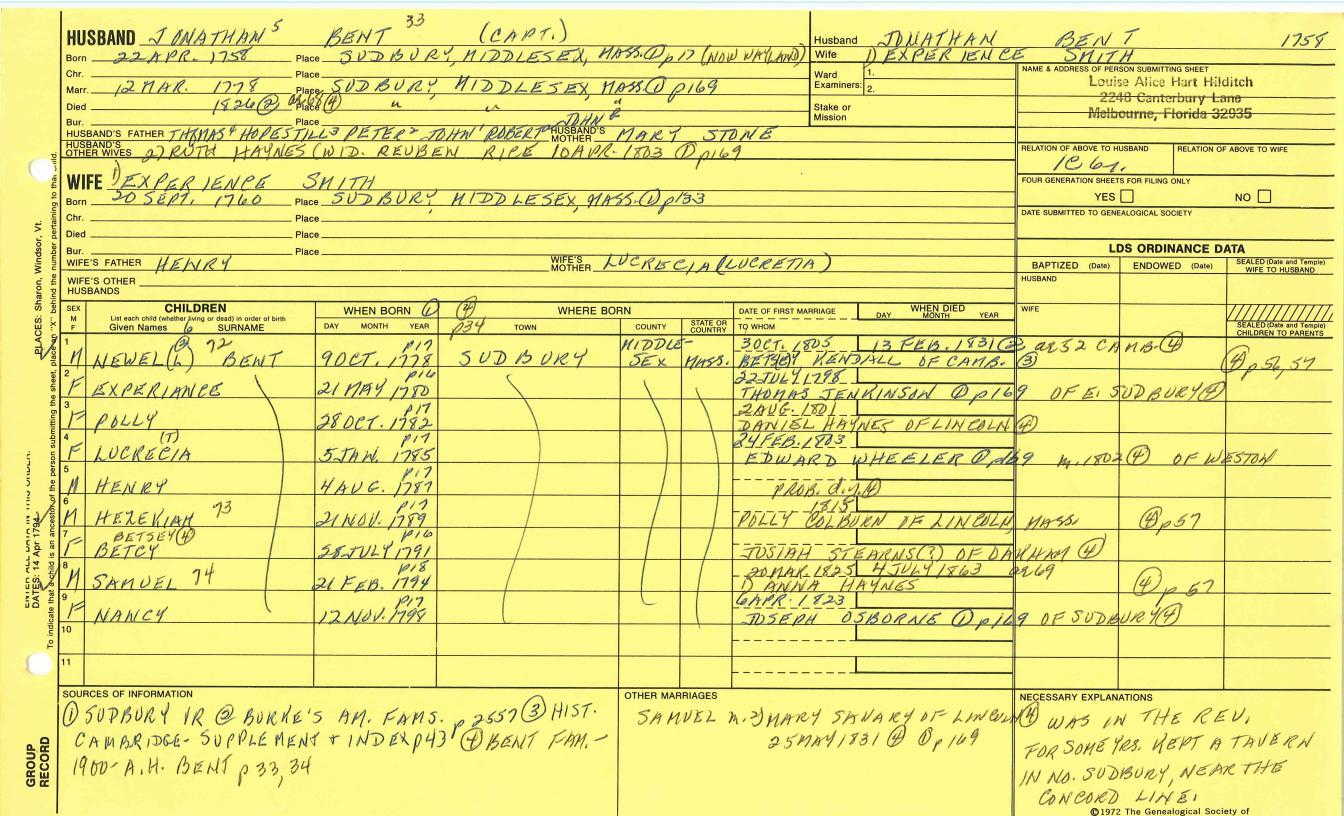 HUSBAND JONATHAN⁵ BENT ³³ (CAPT.)
Born 22 APR. 1758 Place SUDBURY, MIDDLESEX, MASS. ① p17 (NOW WAYLAND)
Chr. Place
Marr. 12 MAR. 1778 Place SUDBURY, MIDDLESEX, MASS ① p169
Died 1826 ② ae 68 ④ Place " " "
Bur. Place
HUSBAND'S FATHER THOMAS⁴ HOPESTILL³ PETER² JOHN¹ ROBERT JOHN HUSBAND'S MOTHER MARY STONE
HUSBAND'S OTHER WIVES 2) RUTH HAYNES (WID. REUBEN RICE 10 APR. 1803 ① p169
WIFE 1) EXPERIENCE SMITH
Born 20 SEPT. 1760 Place SUDBURY, MIDDLESEX, MASS. ① p133
Chr. Place
Died Place
Bur. Place
WIFE'S FATHER HENRY WIFE'S MOTHER LUCRECIA (LUCRETIA)
WIFE'S OTHER HUSBANDS
Husband JONATHAN BENT 1758
Wife 1) EXPERIENCE SMITH
Ward Examiners: 1.
2.
Stake or Mission
NAME & ADDRESS OF PERSON SUBMITTING SHEET
Louise Alice Hart Hilditch
2248 Canterbury Lane
Melbourne, Florida 32935
RELATION OF ABOVE TO HUSBAND RELATION OF ABOVE TO WIFE
1C 6r.
FOUR GENERATION SHEETS FOR FILING ONLY
YES NO
DATE SUBMITTED TO GENEALOGICAL SOCIETY
LDS ORDINANCE DATA
BAPTIZED (Date) ENDOWED (Date) SEALED (Date and Temple) WIFE TO HUSBAND
HUSBAND
WIFE
SEALED (Date and Temple) CHILDREN TO PARENTS
SEX M F
CHILDREN
List each child (whether living or dead) in order of birth
Given Names SURNAME
WHEN BORN ① ④ p34 WHERE BORN
DAY MONTH YEAR TOWN COUNTY STATE OR COUNTRY
DATE OF FIRST MARRIAGE
TO WHOM
WHEN DIED
DAY MONTH YEAR
1 M NEWEL(L) ② 72 BENT p17 9 OCT. 1778 SUDBURY MIDDLE-SEX MASS. 3 OCT. 1805 13 FEB. 1831 ② ae 52 CAMB. ④
BETSEY KENDALL OF CAMB. ③ ④ p56, 57
2 F EXPERIANCE p16 21 MAY 1780 22 JULY 1798
THOMAS JENKINSON ① p169 OF E. SUDBURY ④
3 F POLLY p17 28 OCT. 1782 2 AUG. 1801
DANIEL HAYNES OF LINCOLN ④
4 F LUCRECIA (T) p17 5 JAN. 1785 24 FEB. 1803
EDWARD WHEELER ① p169 m. 1802 ④ OF WESTON
5 M HENRY p17 4 AUG. 1787 PROB. d.y. ④
6 M HEZEKIAH 73 p17 21 NOV. 1789 1815
POLLY COLBURN OF LINCOLN, MASS ④ p57
7 F BETSEY ④ BETCY p16 28 JULY 1791
JOSIAH STEARNS (?) OF DARHAM ④
8 M SAMUEL 74 p18 21 FEB. 1794 20 MAR. 1825 4 JULY 1863 ae 69
1) ANNA HAYNES ④ p 57
9 F NANCY p17 12 NOV. 1798 6 APR. 1823
JOSEPH OSBORNE ① p169 OF SUDBURY ④
10
11
SOURCES OF INFORMATION
① SUDBURY VR ② BURKE'S AM. FAMS. p 2557 ③ HIST.
CAMBRIDGE - SUPPLEMENT + INDEX p43 ④ BENT FAM. -
1900 - A.H. BENT p 33, 34
OTHER MARRIAGES
SAMUEL m. 2) MARY SAVARY OF LINCOLN
25 MAY 1831 ④ ① p169
NECESSARY EXPLANATIONS
④ WAS IN THE REV.
FOR SOME YRS. KEPT A TAVERN
IN NO. SUDBURY, NEAR THE
CONCORD LINE.
©1972 The Genealogical Society of
PLACES: Sharon, Windsor, Vt.
ENTER ALL DATA IN THIS ORDER:
DATES: 14 Apr 1794
To indicate that a child is an ancestor of the person submitting the sheet, place an "X" behind the number pertaining to that child.
GROUP RECORD